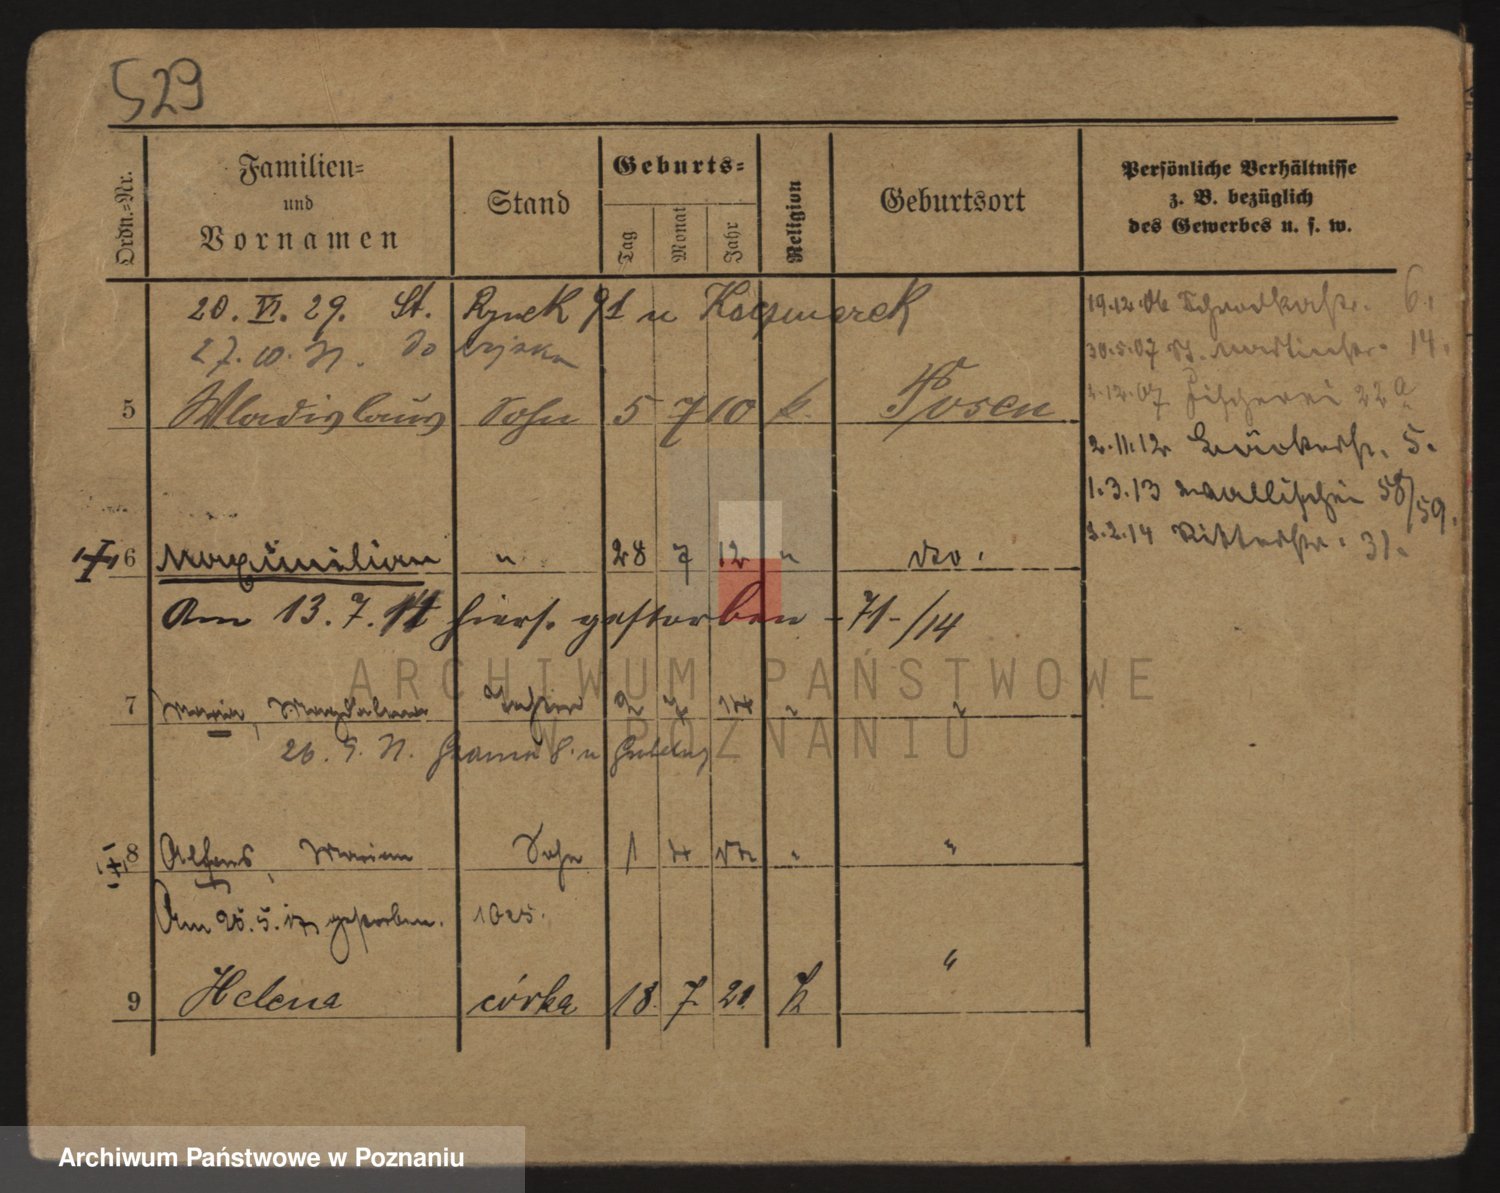 529
Ordn.-Nr.
Familien-
und
Vornamen
Stand
Geburts-
Tag
Monat
Jahr
Religion
Geburtsort
Persönliche Verhältnisse
z. B. bezüglich
des Gewerbes u. s. w.
20. VI. 29. St. Rynek 91 u Kaczmarek
27. 10. do wojska
5 Wladislaus Sohn 5 7 10 k. Posen
6 Maximilian " 28 7 12 " do.
Am 13. 7. 14 hiers. gestorben - 71-/14
7 Maria, Magdalena Tochter 2 7 14 " "
26. 9.
8 Alfons, Marian Sohn 1 " "
Am 25. 5. 17 gestorben. 1025.
9 Helena córka 18. 7. 20. k "
19.12.06 Schrodkastr. 6.
30.5.07 St. Martinstr. 14.
1.12.07 Fischerei 22a
2.11.12 Bäckerstr. 5.
1.3.13 Wallischei 58/59.
1.2.14 Ritterstr. 31.
ARCHIWUM PAŃSTWOWE
W POZNANIU
Archiwum Państwowe w Poznaniu